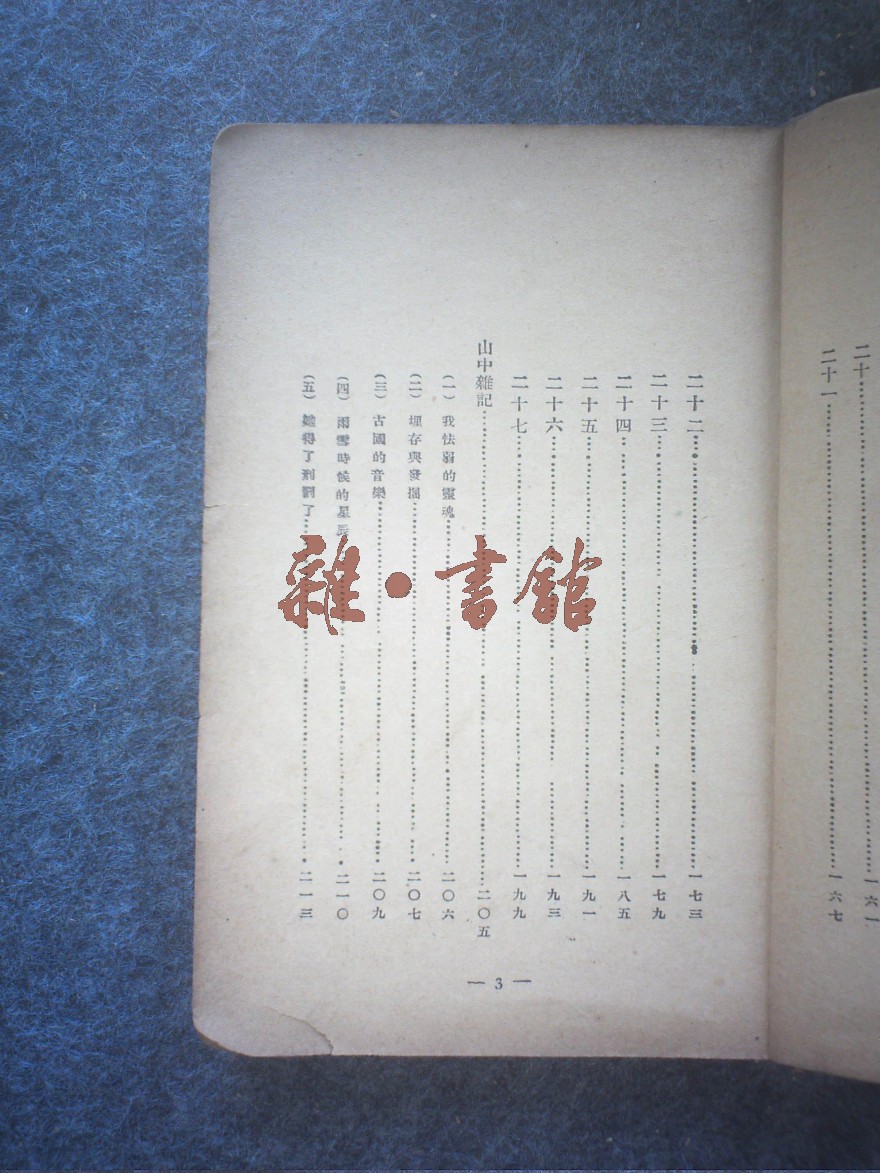 二十……一六一
二十一……一六七
二十二……一七三
二十三……一七九
二十四……一八五
二十五……一九一
二十六……一九三
二十七……一九九
山中雜記……二〇五
(一) 我怯弱的靈魂……二〇六
(二) 埋存與發掘……二〇七
(三) 古國的音樂……二〇九
(四) 雨雪時候的星辰……二一〇
(五) 她得了刑罰了……二一三
— 3 —
雜·書館